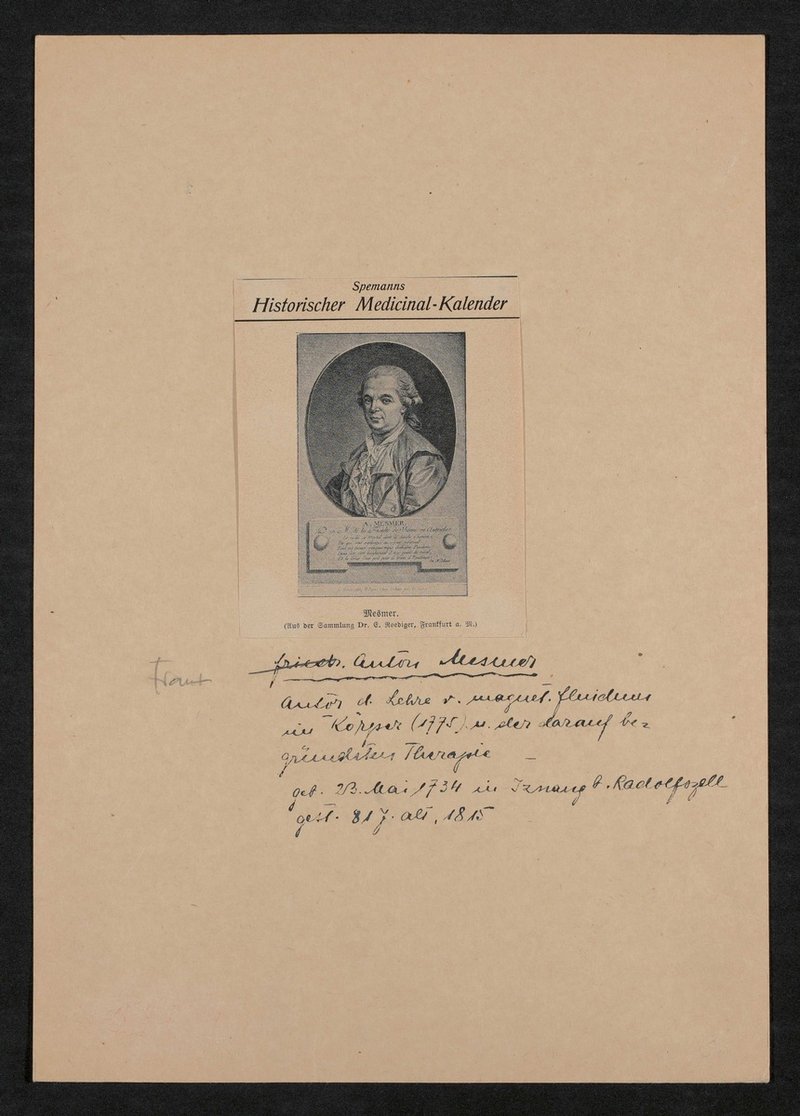 Spemanns
Historischer Medicinal-Kalender
A. MESMER,
Mesmer.
(Aus der Sammlung Dr. E. Roediger, Frankfurt a. M.)
Franz
Friedr. Anton Mesmer
Autor d. Lehre v. magnet. fluidum
im Körper (1775) u. der darauf be=
gründeten Therapie
geb. 23. Mai 1734 in Iznang b. Radolfszell
gest. 81 J. alt, 1815